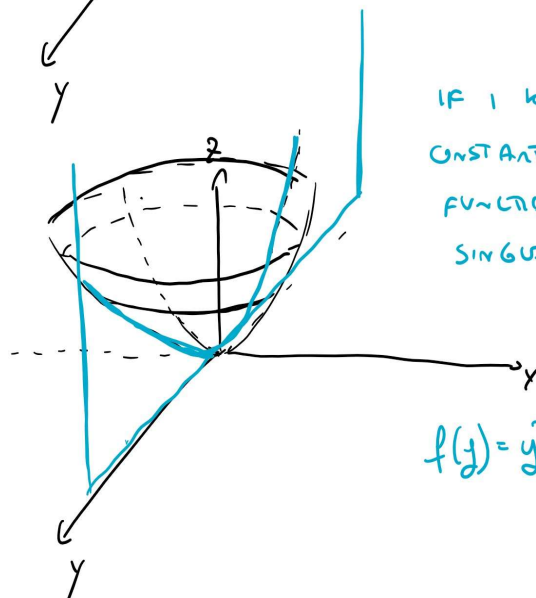 y
z
IF I
CONSTAN
FUNCTIO
SINGU
x
f(y) = y
y